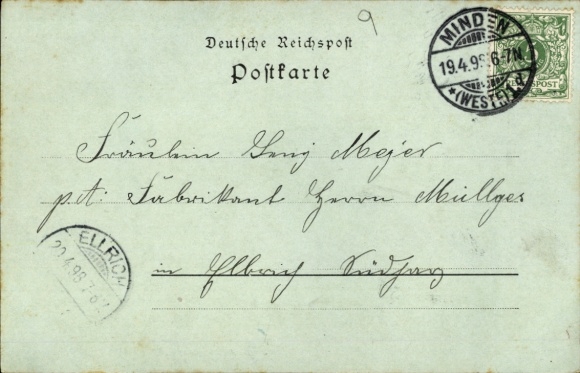 9
Deutsche Reichspost
Postkarte
MINDEN
19.4.98 6-7N.
*(WESTF.)1d
Fräulein Meyer
p.A: Fabrikant Herrn Müllges
in Ellrich Südharz
ELLRICH
20.4.98